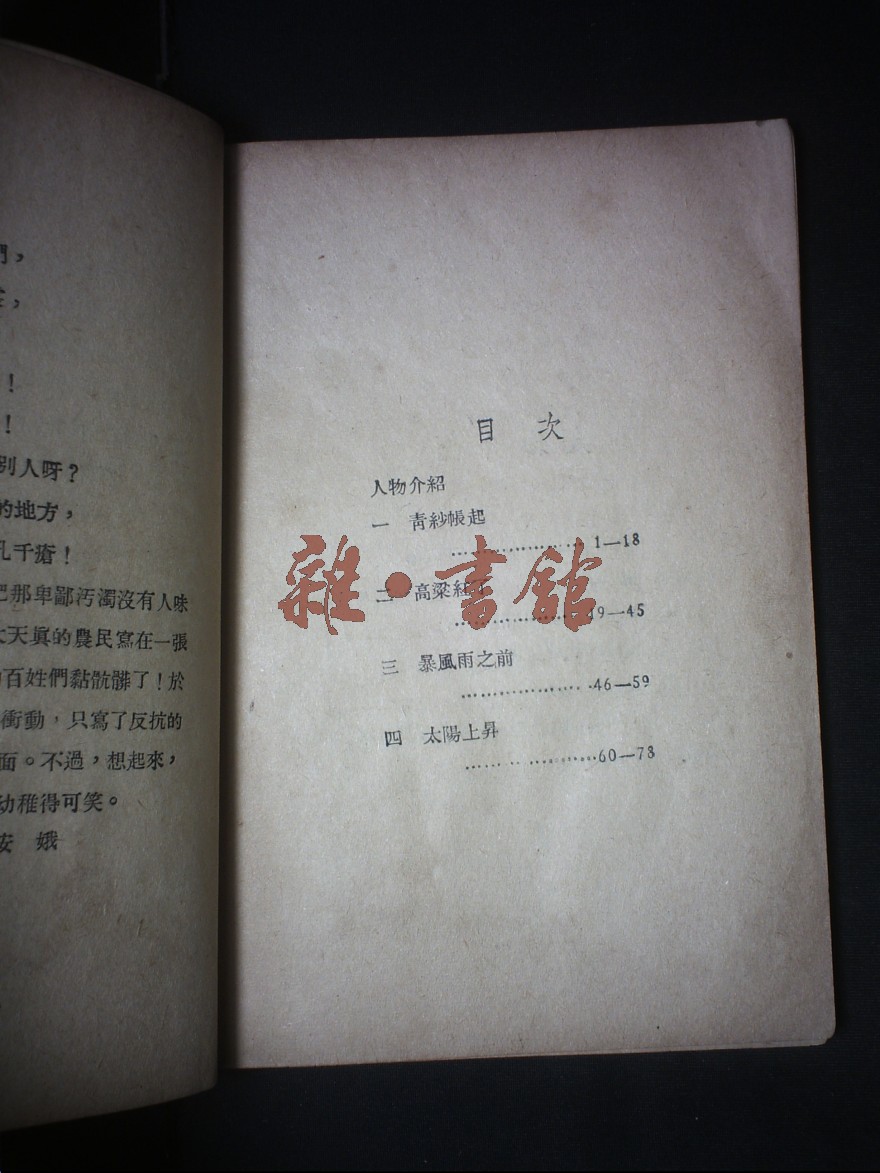 們，
，
！
！
別人呀？
的地方，
孔千瘡！
把那卑鄙汚濁沒有人味
天眞的農民寫在一張
百姓們黏骯髒了！於
衝動，只寫了反抗的
面。不過，想起來，
幼稚得可笑。
安 娥
目 次
人物介紹
一 靑紗帳起
1—18
二 高梁紅了
19—45
三 暴風雨之前
46—59
四 太陽上昇
60—73
雜·書館